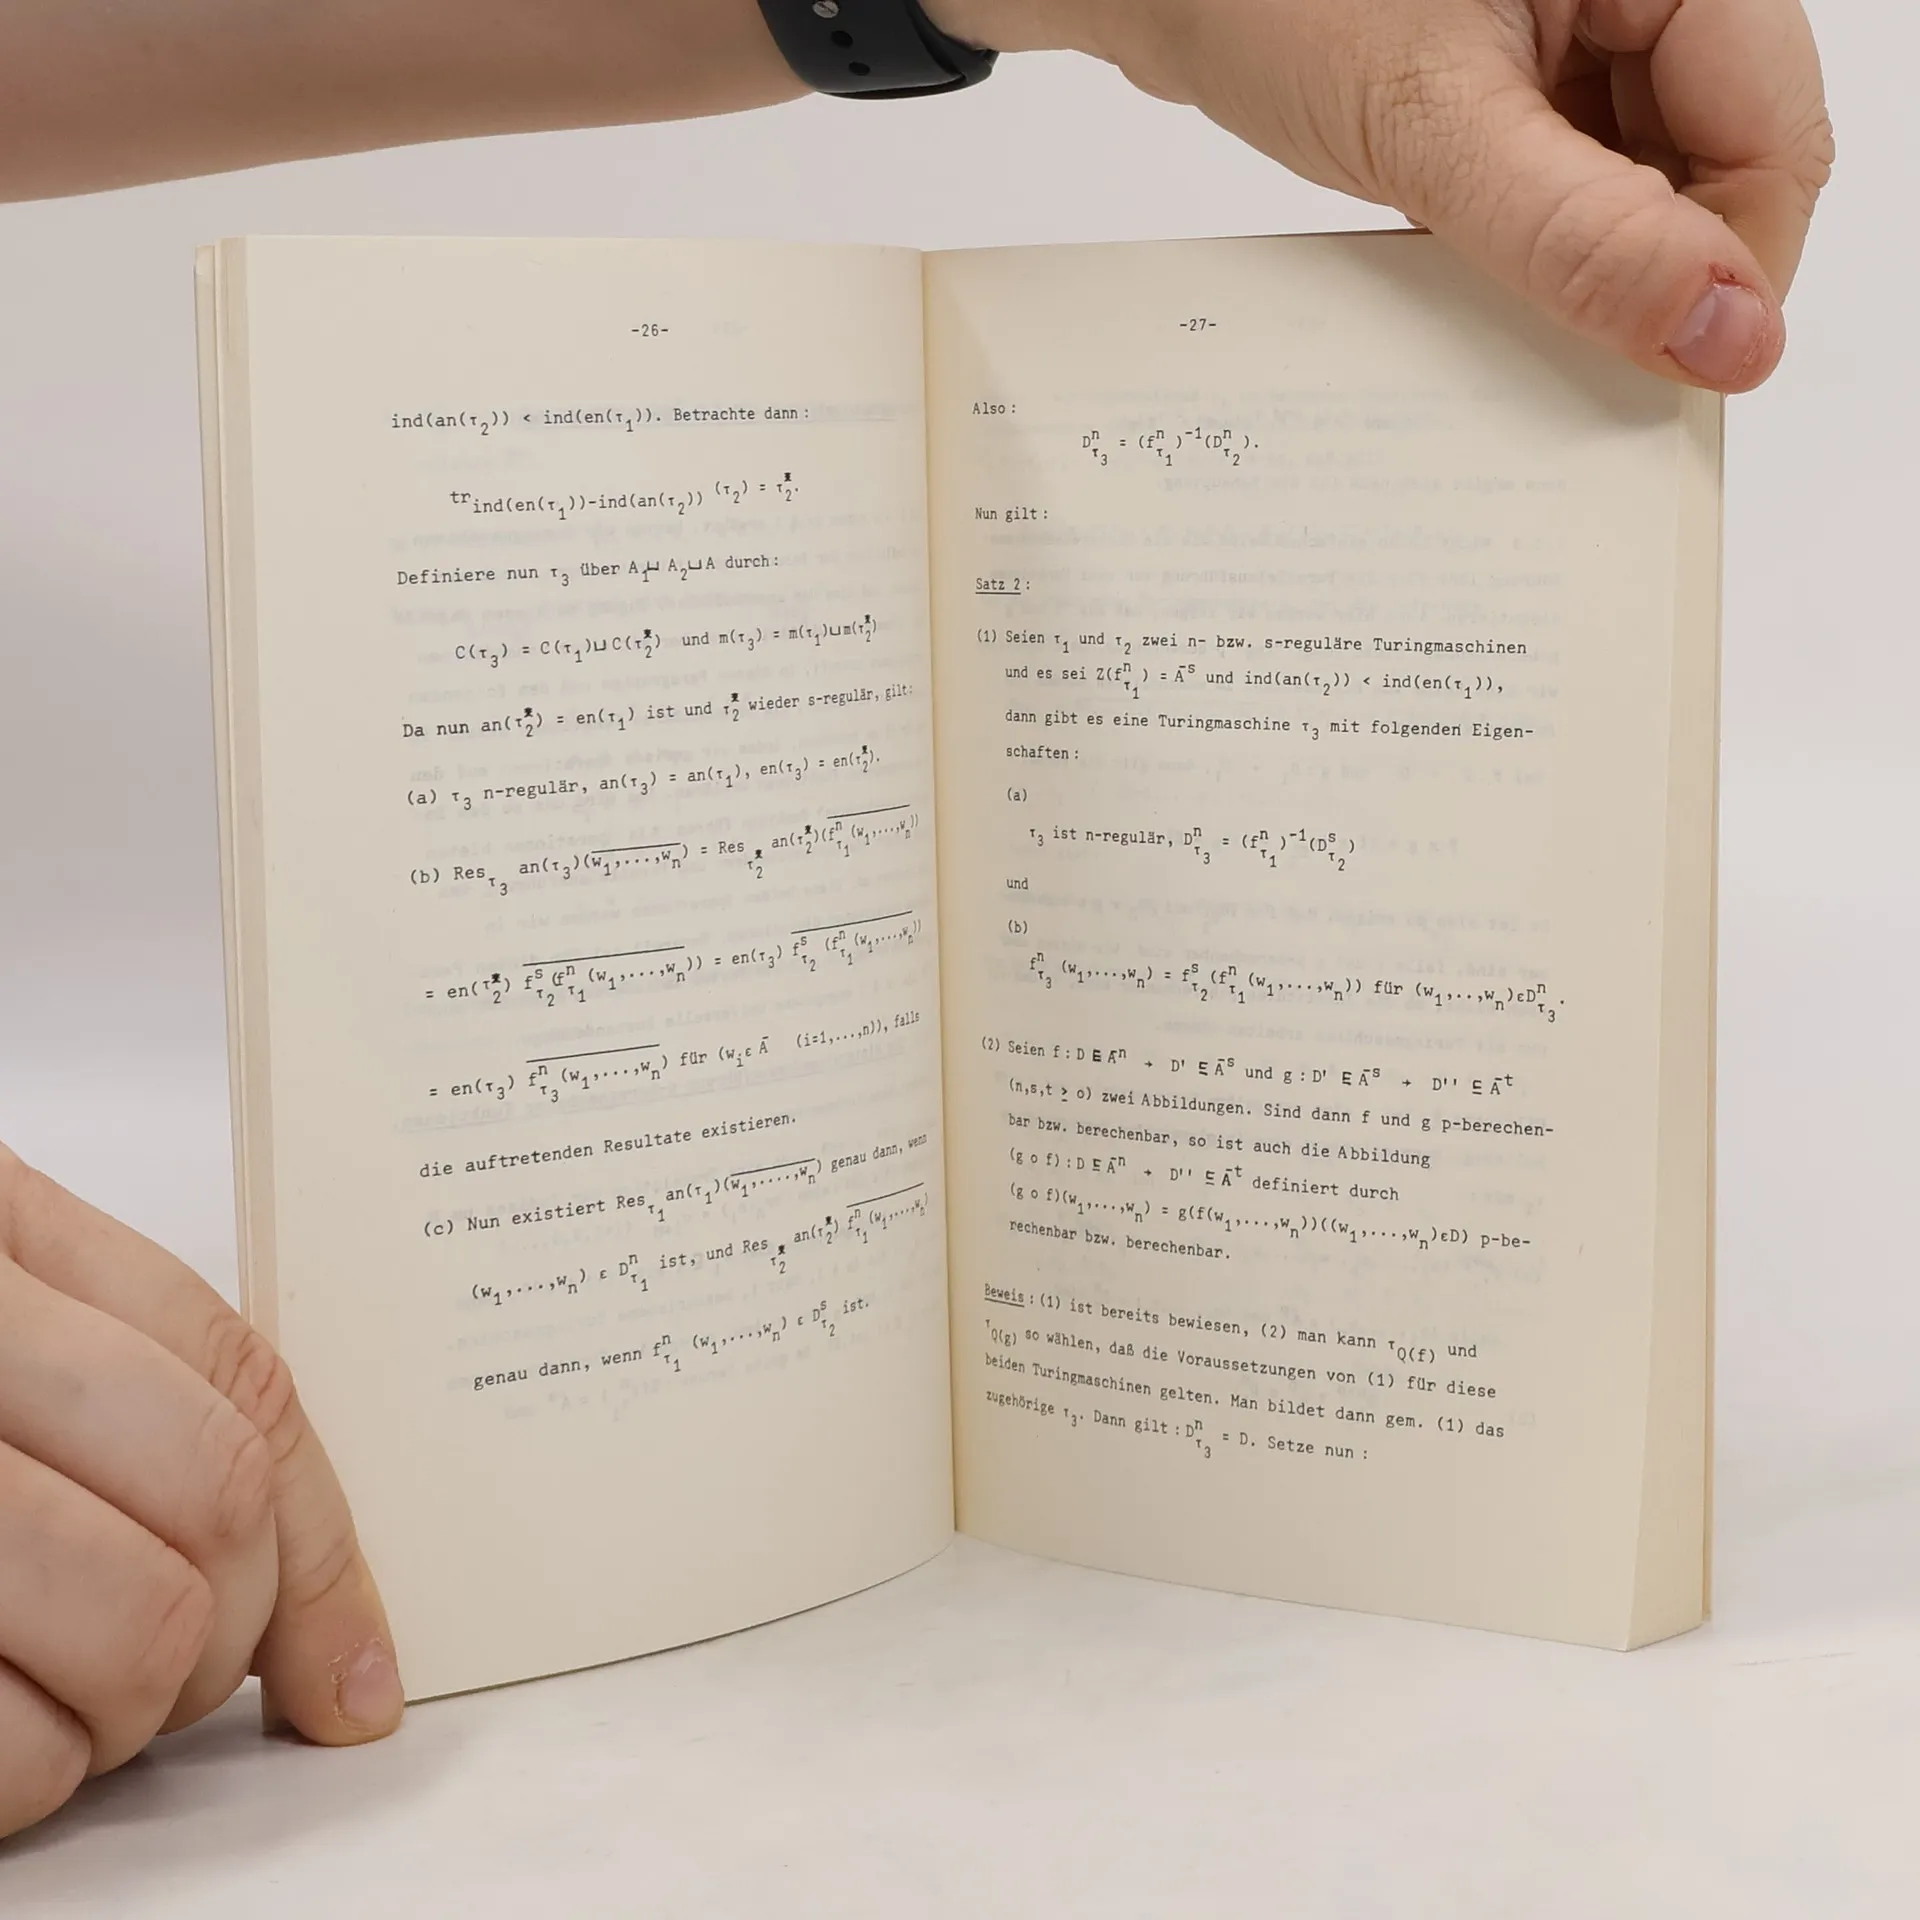 -26-
ind(an(τ₂)) < ind(en(τ₁)). Betrachte dann:
tr_ind(en(τ₁))-ind(an(τ₂)) (τ₂) = τ₂*.
Definiere nun τ₃ über A₁⊔ A₂⊔A durch:
C(τ₃) = C(τ₁)⊔C(τ₂*) und m(τ₃) = m(τ₁)⊔m(τ₂*)
Da nun an(τ₂*) = en(τ₁) ist und τ₂* wieder s-regulär, gilt:
(a) τ₃ n-regulär, an(τ₃) = an(τ₁), en(τ₃) = en(τ₂*).
(b) Res_τ₃ an(τ₃)(w₁,...,wₙ) = Res_τ₂* an(τ₂*)(fⁿ_τ₁ (w₁,...,wₙ))
= en(τ₂*) fˢ_τ₂ (fⁿ_τ₁ (w₁,...,wₙ)) = en(τ₃) fˢ_τ₂ (fⁿ_τ₁ (w₁,...,wₙ))
= en(τ₃) fⁿ_τ₃ (w₁,...,wₙ) für (wᵢε Ā (i=1,...,n)), falls
die auftretenden Resultate existieren.
(c) Nun existiert Res_τ₁ an(τ₁)(w₁,....,wₙ) genau dann, wenn
(w₁,...,wₙ) ε Dⁿ_τ₁ ist, und Res_τ₂* an(τ₂*) fⁿ_τ₁ (w₁,...,wₙ)
genau dann, wenn fⁿ_τ₁ (w₁,...,wₙ) ε Dˢ_τ₂ ist.
-27-
Also:
Dⁿ_τ₃ = (fⁿ_τ₁)⁻¹(Dⁿ_τ₂).
Nun gilt:
Satz 2:
(1) Seien τ₁ und τ₂ zwei n- bzw. s-reguläre Turingmaschinen
und es sei Z(fⁿ_τ₁) = Āˢ und ind(an(τ₂)) < ind(en(τ₁)),
dann gibt es eine Turingmaschine τ₃ mit folgenden Eigen-
schaften:
(a)
τ₃ ist n-regulär, Dⁿ_τ₃ = (fⁿ_τ₁)⁻¹(Dˢ_τ₂)
und
(b)
fⁿ_τ₃ (w₁,...,wₙ) = fˢ_τ₂ (fⁿ_τ₁ (w₁,...,wₙ)) für (w₁,..,wₙ)εDⁿ_τ₃.
(2) Seien f:D ⊆ Āⁿ → D' ⊆ Āˢ und g:D' ⊆ Āˢ → D'' ⊆ Āᵗ
(n,s,t ≥ o) zwei Abbildungen. Sind dann f und g p-berechen-
bar bzw. berechenbar, so ist auch die Abbildung
(g o f):D ⊆ Āⁿ → D'' ⊆ Āᵗ definiert durch
(g o f)(w₁,...,wₙ) = g(f(w₁,...,wₙ))((w₁,...,wₙ)εD) p-be-
rechenbar bzw. berechenbar.
Beweis:(1) ist bereits bewiesen, (2) man kann τ_Q(f) und
τ_Q(g) so wählen, daß die Voraussetzungen von (1) für diese
beiden Turingmaschinen gelten. Man bildet dann gem. (1) das
zugehörige τ₃. Dann gilt:Dⁿ_τ₃ = D. Setze nun: